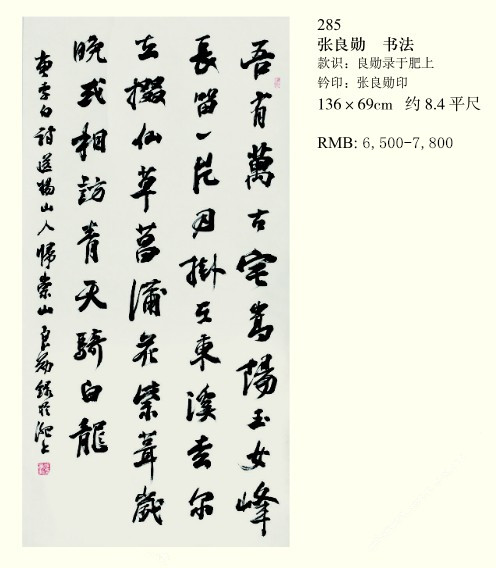 吾有萬古宅嵩陽玉女峰
長留一片月掛在東溪松尔
去掇仙草菖蒲花紫茸歲
晚或相訪青天騎白龍
唐李白詩送楊山人歸嵩山 良勛錄於淝上
285
张良勋 书法
款识：良勋录于肥上
钤印：张良勋印
136×69cm 约 8.4 平尺
RMB: 6,500-7,800